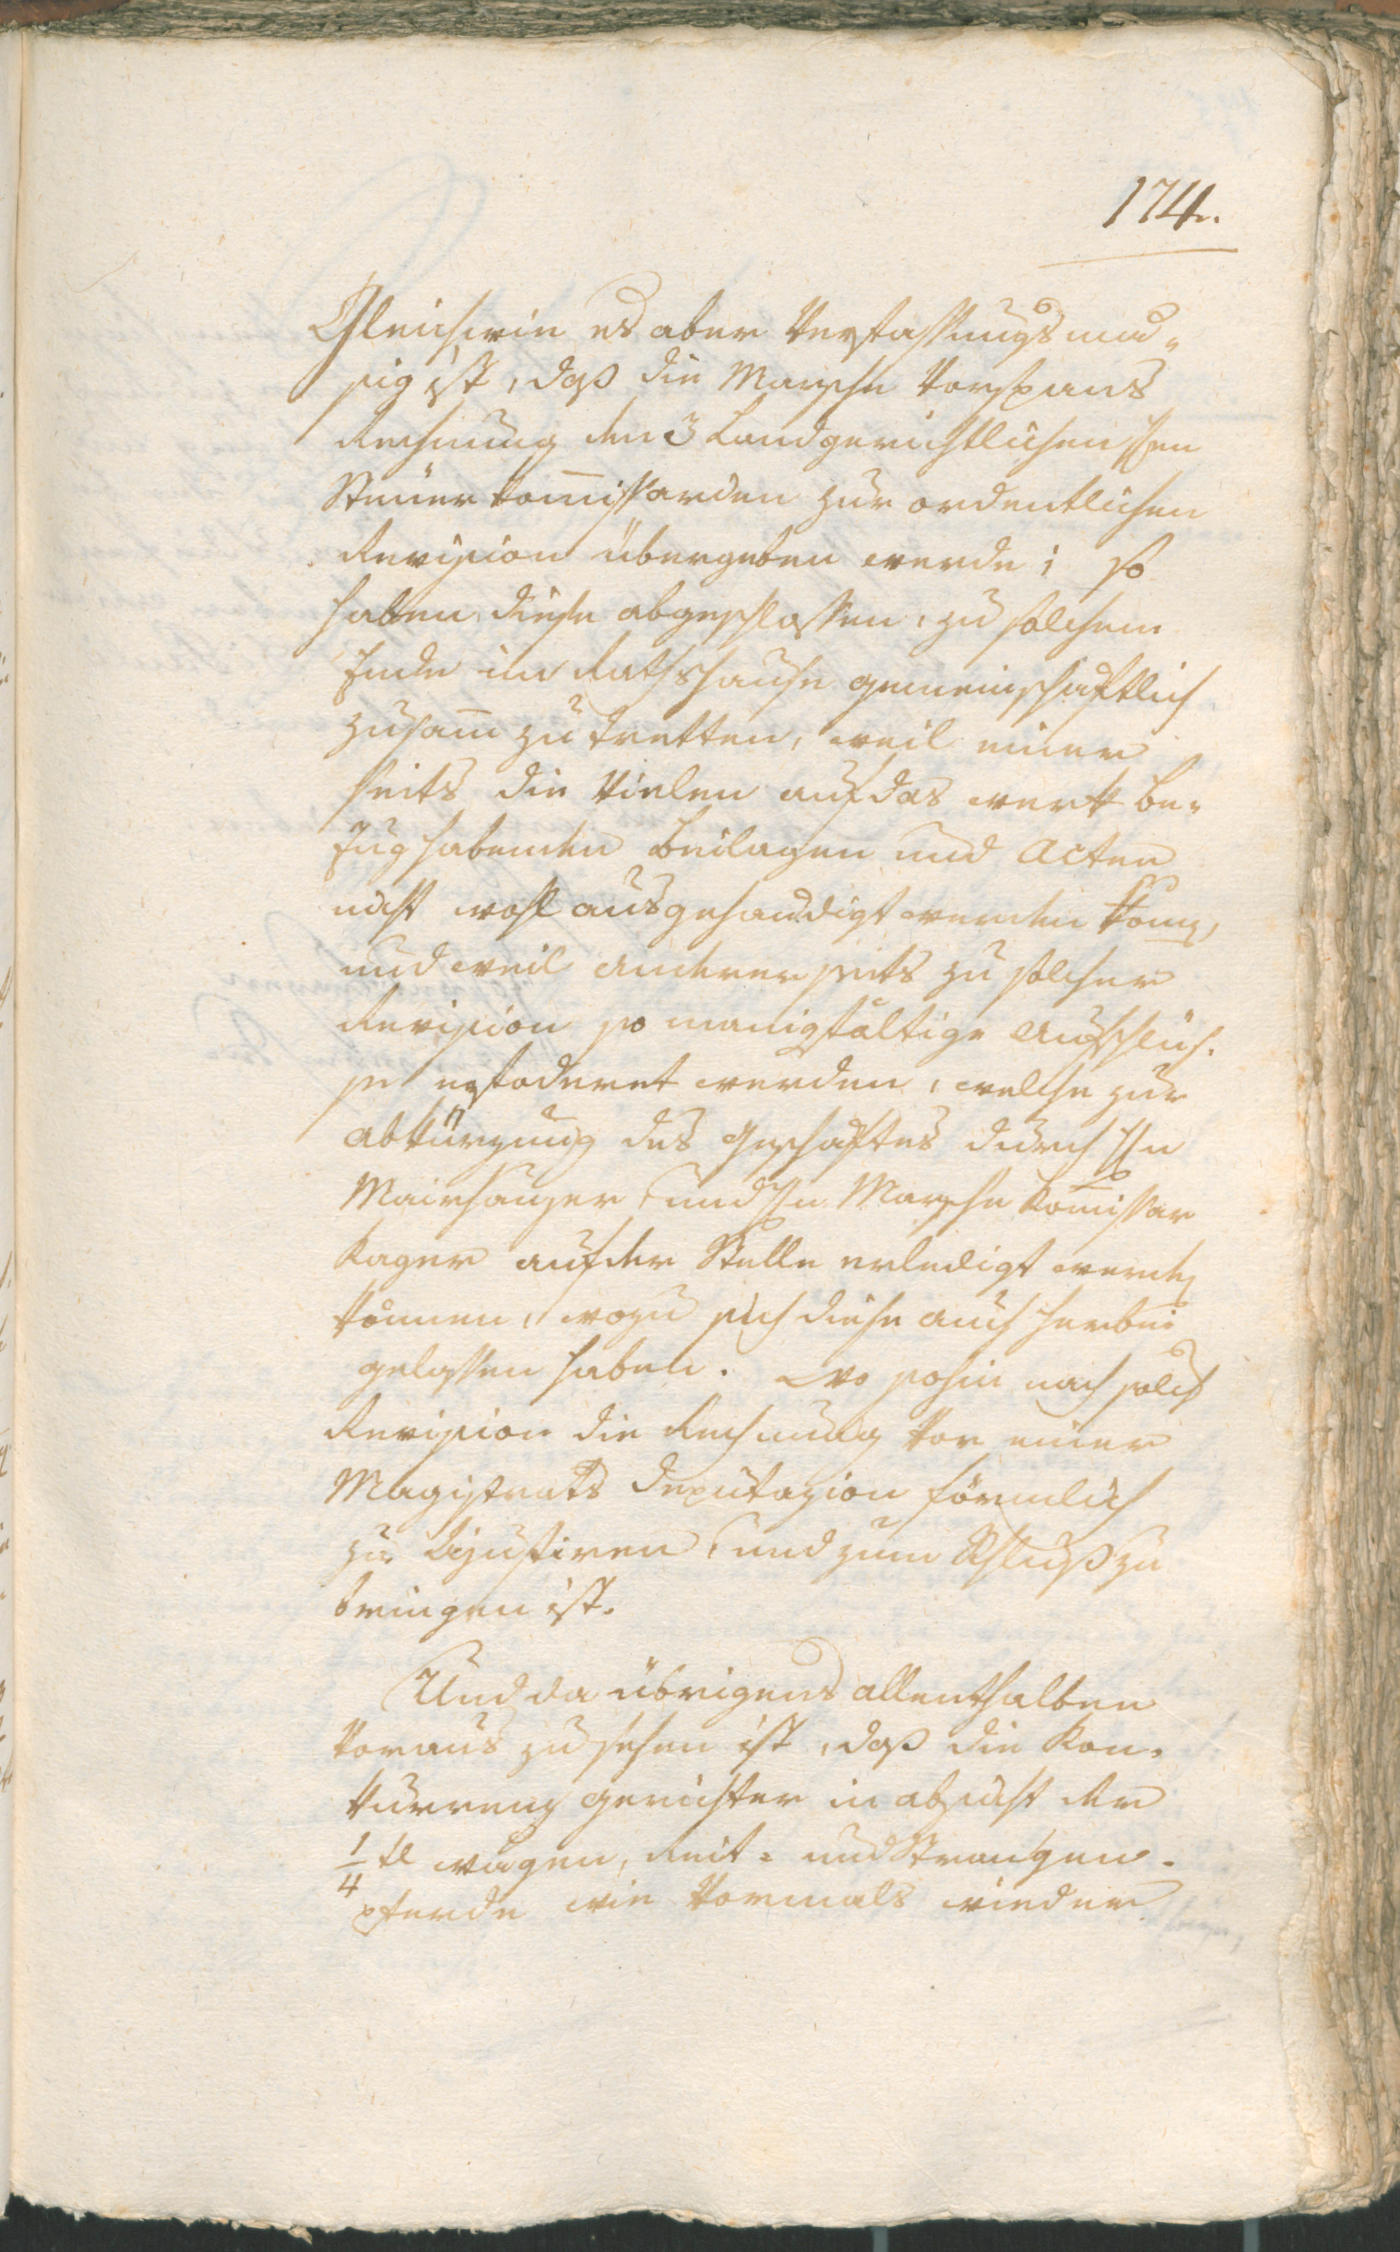 174.
Gleichwie es aber Verfassungsmä„
sig ist, daß die Marsche Vorspans
Rechnung den 3 Landgerichtlichen Hen
Steuer Kom̄issarden zur ordentlichen
Revision übergeben werde; so
haben diese abgeschlossen, zu solchem
Ende im Rathshause gemeinschaftlich
zusam̄ zu tretten, weil einer
seits die Vielen auf das werk be„
zug habenden Beilagen und Acten
nicht wohl ausgehändigt werden könn,
und weil anderer seits zu solcher
Revision so manigfältige Aufschlüs„
se erfoderet werden, welche zur
abkürzung des Geschäftes durch Hn
Mairhauser und Hn Marsche Kom̄issar
Kager auf der Stelle erledigt werden
können, wozu sich diese auch herbei
gelassen haben. wo sohin nach solch
Revision die Rechnung vor einer
Magistrats Deputazion förmlich
zu Lijustiren, und zum Schluß zu
bringen ist.
Und da übrigens allenthalben
Voraus zusehen ist, daß die Kon„
kurrenz gerichter in absicht der
1/4 tl wägen, Reit= und Strangen„
pferde wie Vormals wieder